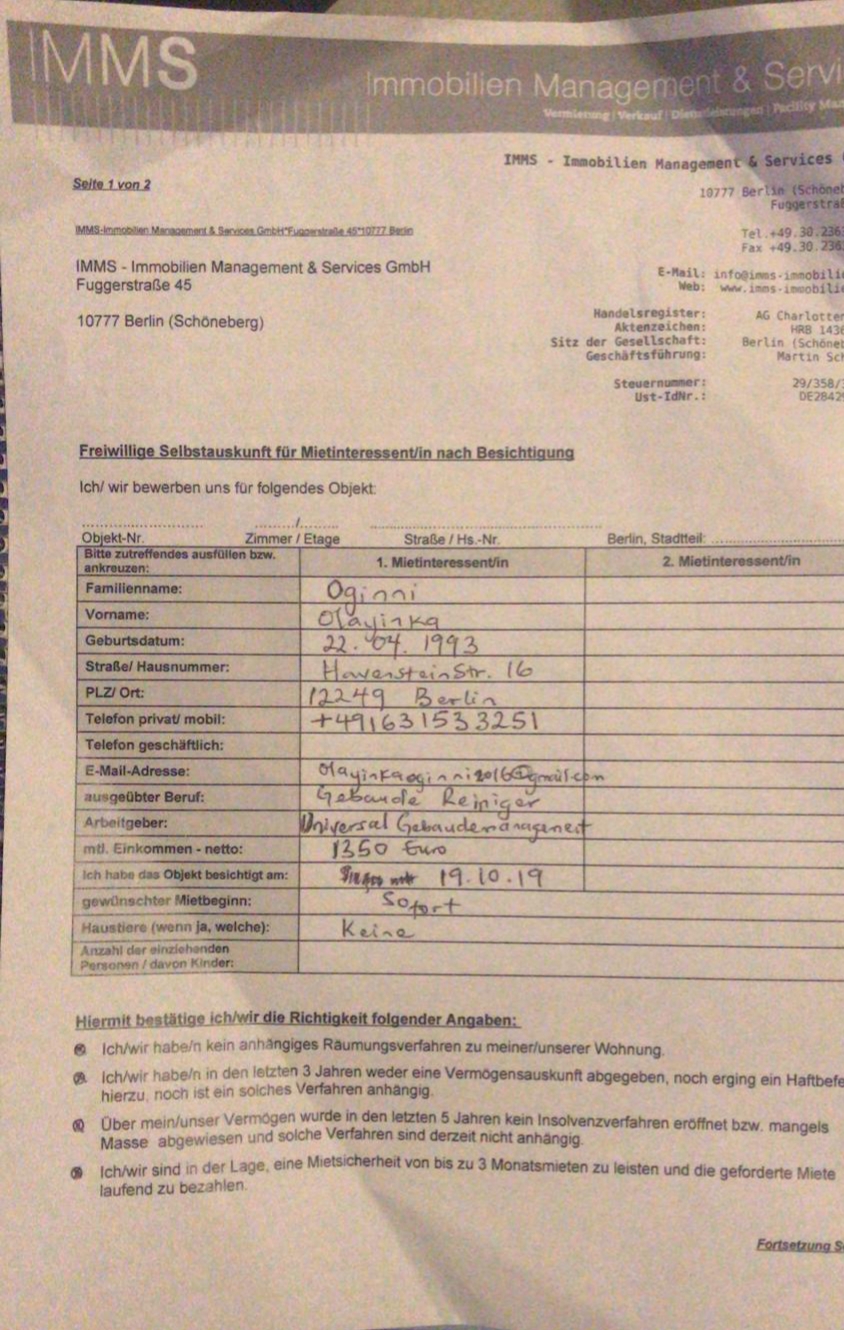 IMMS
Immobilien Management & Servi
Vermietung | Verkauf | Dienstleistungen | Facility Man
IMMS - Immobilien Management & Services
Seite 1 von 2
10777 Berlin (Schöneb
Fuggerstraß
IMMS-Immobilien Management & Services GmbH*Fuggerstraße 45*10777 Berlin
Tel.+49.30.236
Fax +49.30.236
IMMS - Immobilien Management & Services GmbH
Fuggerstraße 45
E-Mail: info@imms-immobilie
Web: www.imms-immobilie
10777 Berlin (Schöneberg)
Handelsregister: AG Charlotten
Aktenzeichen: HRB 1436
Sitz der Gesellschaft: Berlin (Schöneb
Geschäftsführung: Martin Sch
Steuernummer: 29/358/
Ust-IdNr.: DE2842
Freiwillige Selbstauskunft für Mietinteressent/in nach Besichtigung
Ich/ wir bewerben uns für folgendes Objekt:
Objekt-Nr. Zimmer / Etage Straße / Hs.-Nr. Berlin, Stadtteil:
Bitte zutreffendes ausfüllen bzw.
ankreuzen: 1. Mietinteressent/in 2. Mietinteressent/in
Familienname: Oginni
Vorname: Olayinka
Geburtsdatum: 22.04.1993
Straße/ Hausnummer: Havensteinstr. 16
PLZ/ Ort: 12249 Berlin
Telefon privat/ mobil: +491631533251
Telefon geschäftlich:
E-Mail-Adresse: Olayinkaoginni2016@gmail.com
ausgeübter Beruf: Gebaude Reiniger
Arbeitgeber: Universal Gebaudemanagement
mtl. Einkommen - netto: 1350 Euro
Ich habe das Objekt besichtigt am: 19.10.19
gewünschter Mietbeginn: Sofort
Haustiere (wenn ja, welche): Keine
Anzahl der einziehenden
Personen / davon Kinder:
Hiermit bestätige ich/wir die Richtigkeit folgender Angaben:
Ich/wir habe/n kein anhängiges Räumungsverfahren zu meiner/unserer Wohnung.
Ich/wir habe/n in den letzten 3 Jahren weder eine Vermögensauskunft abgegeben, noch erging ein Haftbefe
hierzu, noch ist ein solches Verfahren anhängig.
Über mein/unser Vermögen wurde in den letzten 5 Jahren kein Insolvenzverfahren eröffnet bzw. mangels
Masse abgewiesen und solche Verfahren sind derzeit nicht anhängig.
Ich/wir sind in der Lage, eine Mietsicherheit von bis zu 3 Monatsmieten zu leisten und die geforderte Miete
laufend zu bezahlen.
Fortsetzung S